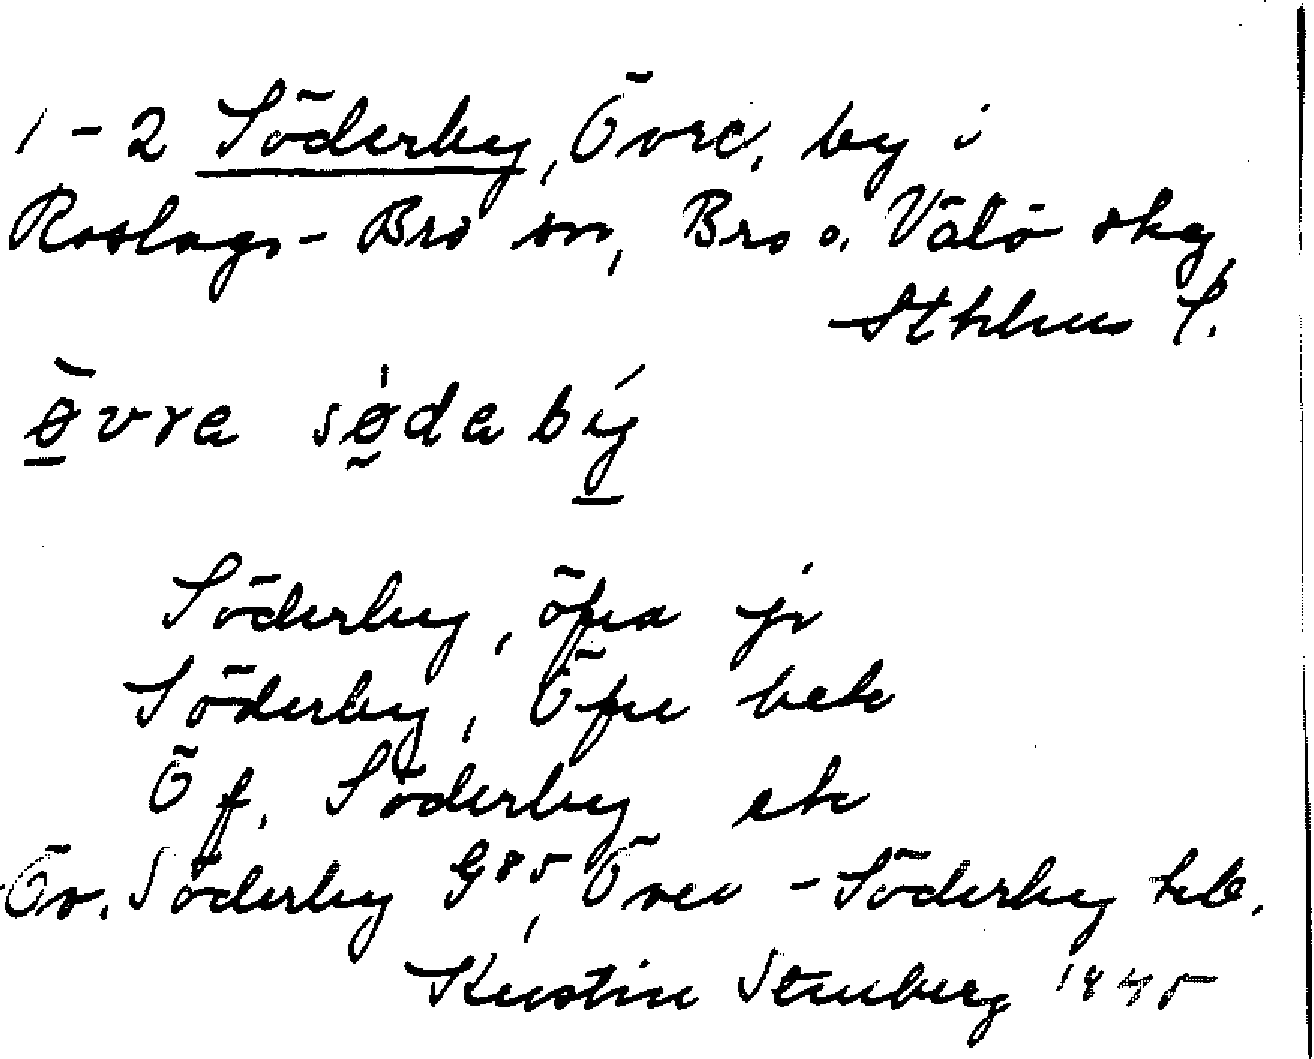 1-2 Söderby, Övre, by i
Roslags-Bro sn, Bro o. Vätö skg,
Sthlms l.
øvra sødabý
Söderby, öfra jr
Söderby, Öfre bek
Öf. Söderby ek
Öv. Söderby G85, Övre-Söderby hb.
Kerstin Stenberg 1945